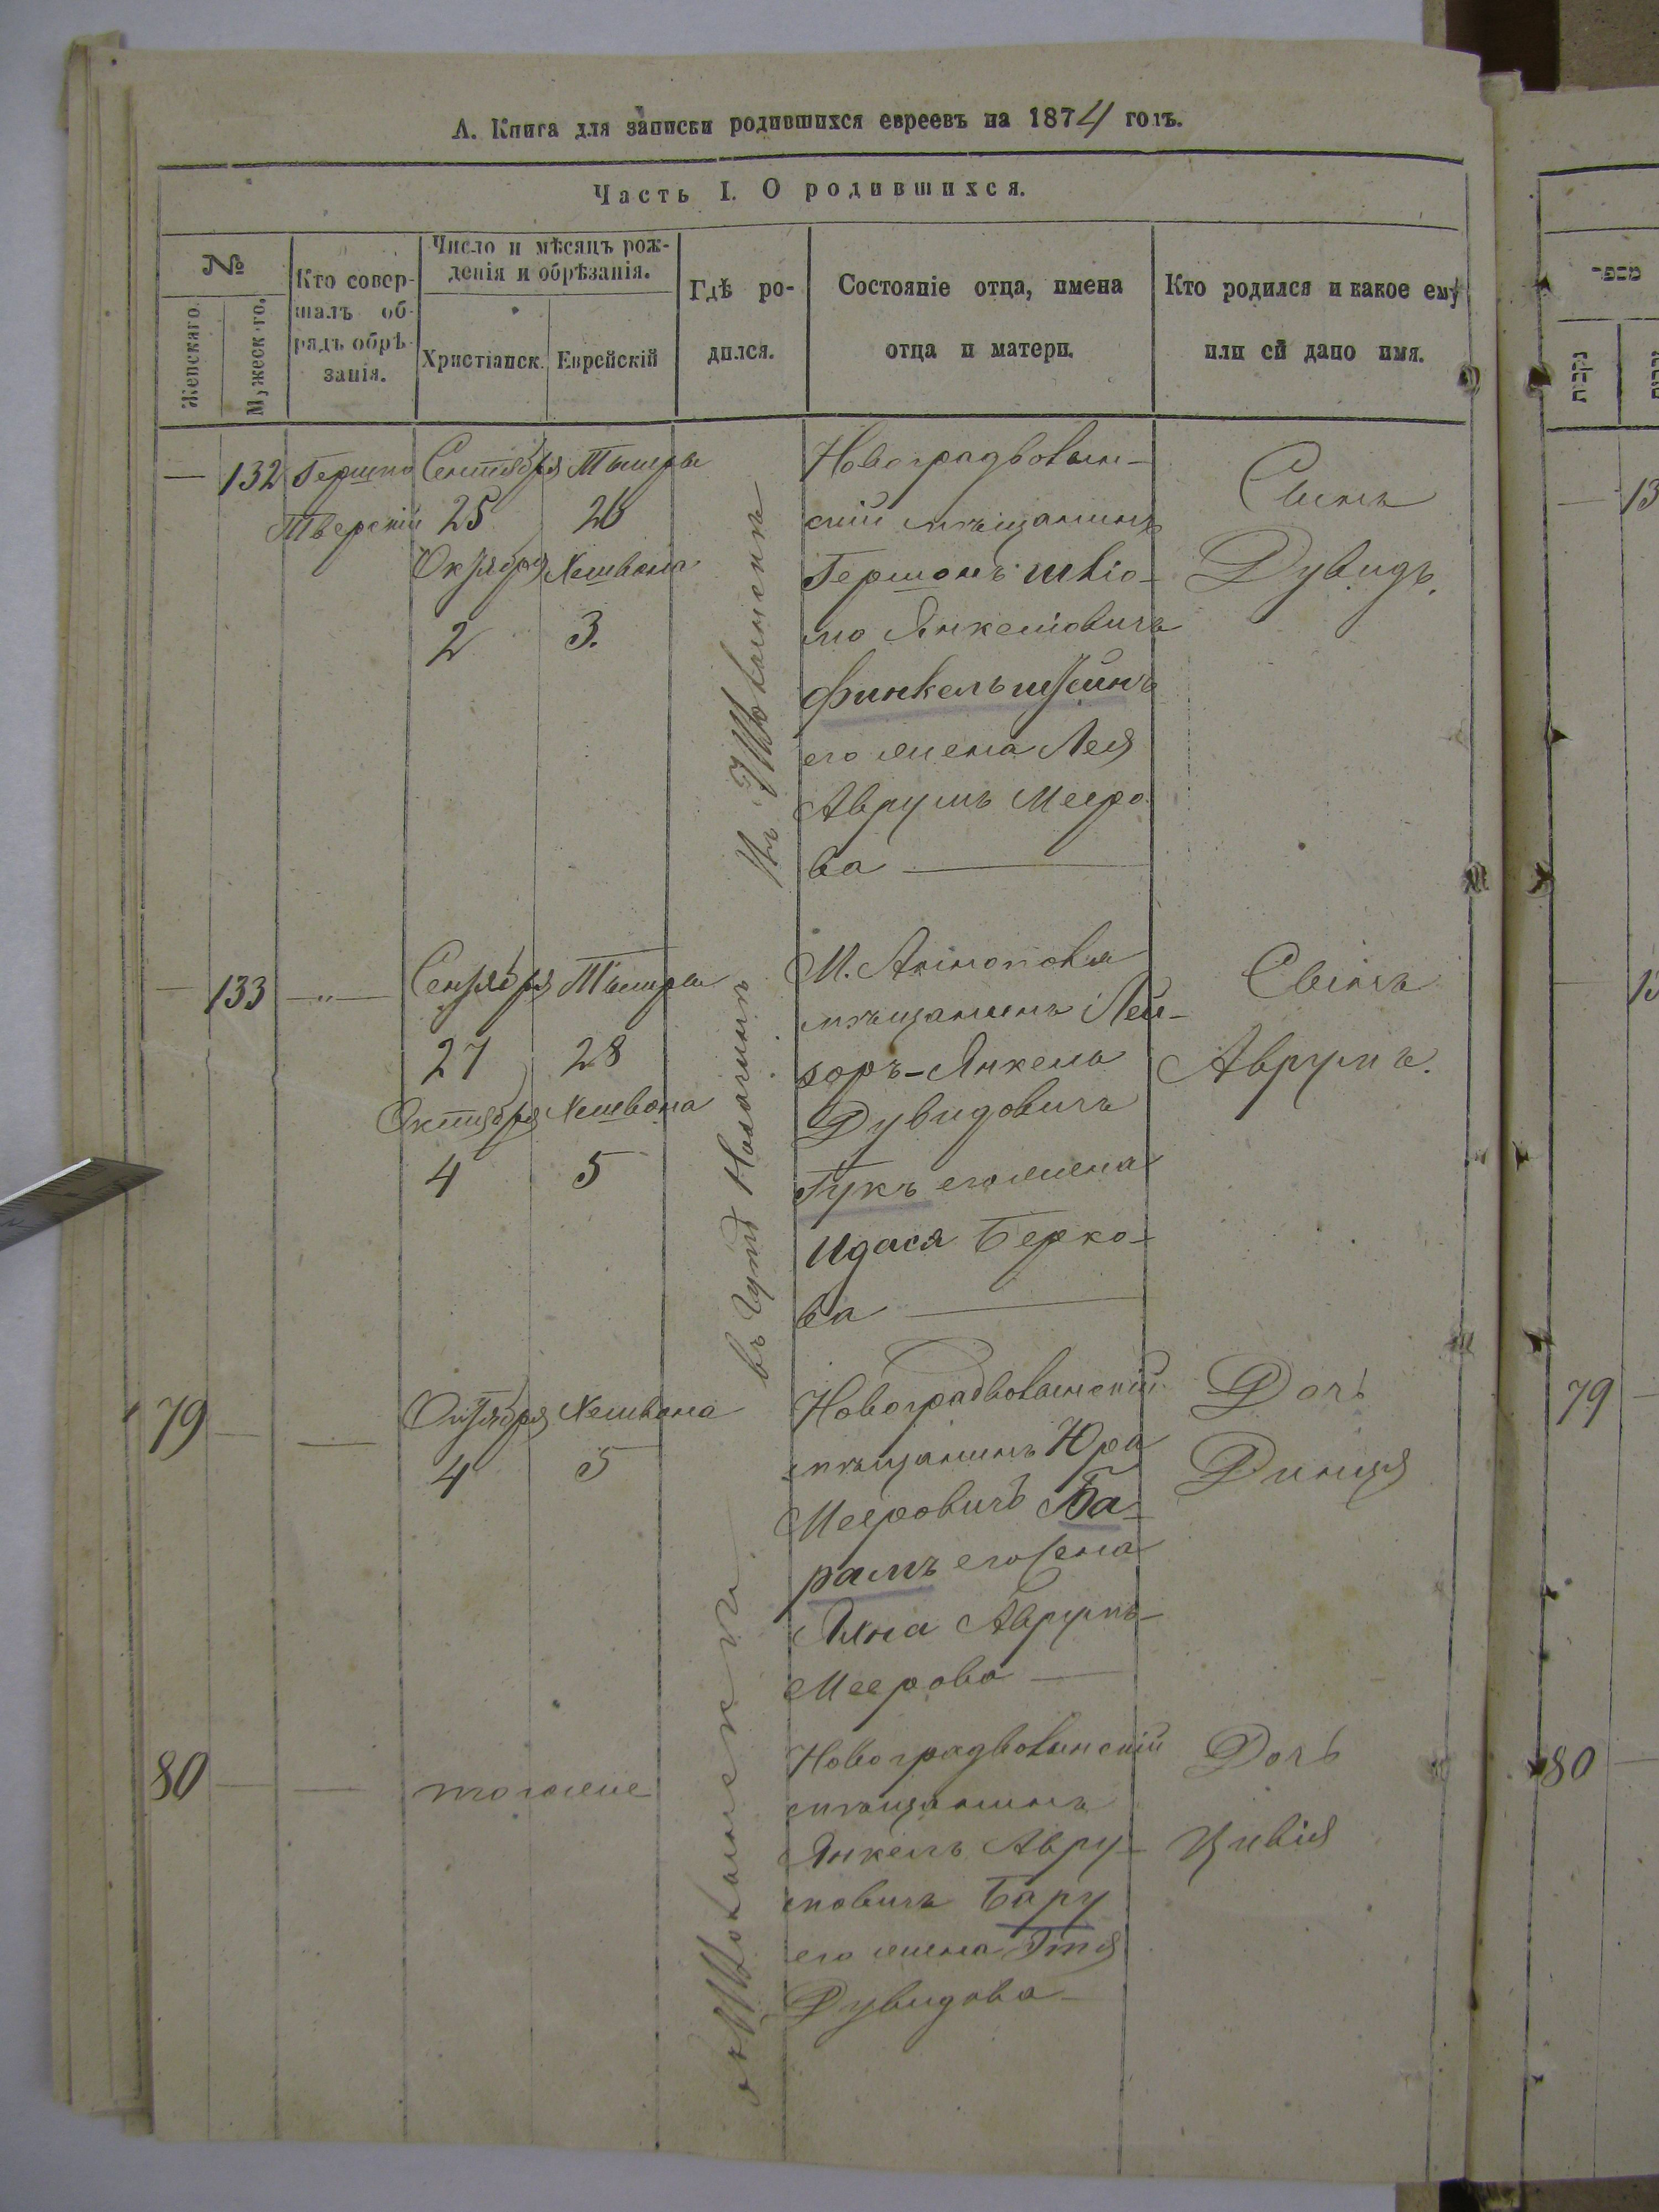 А. Книга для записки родившихся евреевъ на 1874 годъ.
Часть I. О родившихся.
№
Женскаго.
Мужеск-го.
Кто совер-
шалъ об-
рядъ обрѣ-
занія.
Число и мѣсяцъ рож-
денія и обрѣзанія.
Христіанск.
Еврейскій
Гдѣ ро-
дился.
Состояніе отца, имена
отца и матери.
Кто родился и какое ему
или ей дано имя.
— 132
Гершко
Тверскій
Сентября
25
Октября
2
Тышры
26
Хешвана
3.
Новоградволын-
скій мѣщанинъ
Гершонъ Шліо-
мо Янкелiовичъ
Финкельштейнъ
его жена Лея
Аврумъ Мееро
ва —
Сынъ
Дувидъ.
— 133
—"—
Сентября
27
Октября
4
Тышры
28
Хешвана
5
М.
мѣщанинъ Лей-
зоръ-Янкель
Дувидовичъ
Гукъ его жена
Идася Берко-
ва —
Сынъ
Аврумъ.
79 —
—
Октября
4
Хешвана
5
Новоградволынскій
мѣщанинъ Юра
Мееровичъ Ба-
рамъ его жена
Аврумъ-
Меерова —
Дочь
80 —
—
тогоже
Новоградволынскій
мѣщанинъ
Янкель Авру-
мовичъ Бару
его жена Гитя
Дувидова —
Дочь
Цивія
מספר
נקבות
13
13
79
80